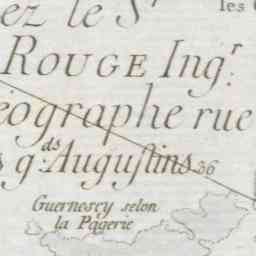 ez le S.r
les
ROUGE Ing.r
éographe rue
s g.ds Augustins 36
Guernesey selon
la Pagerie